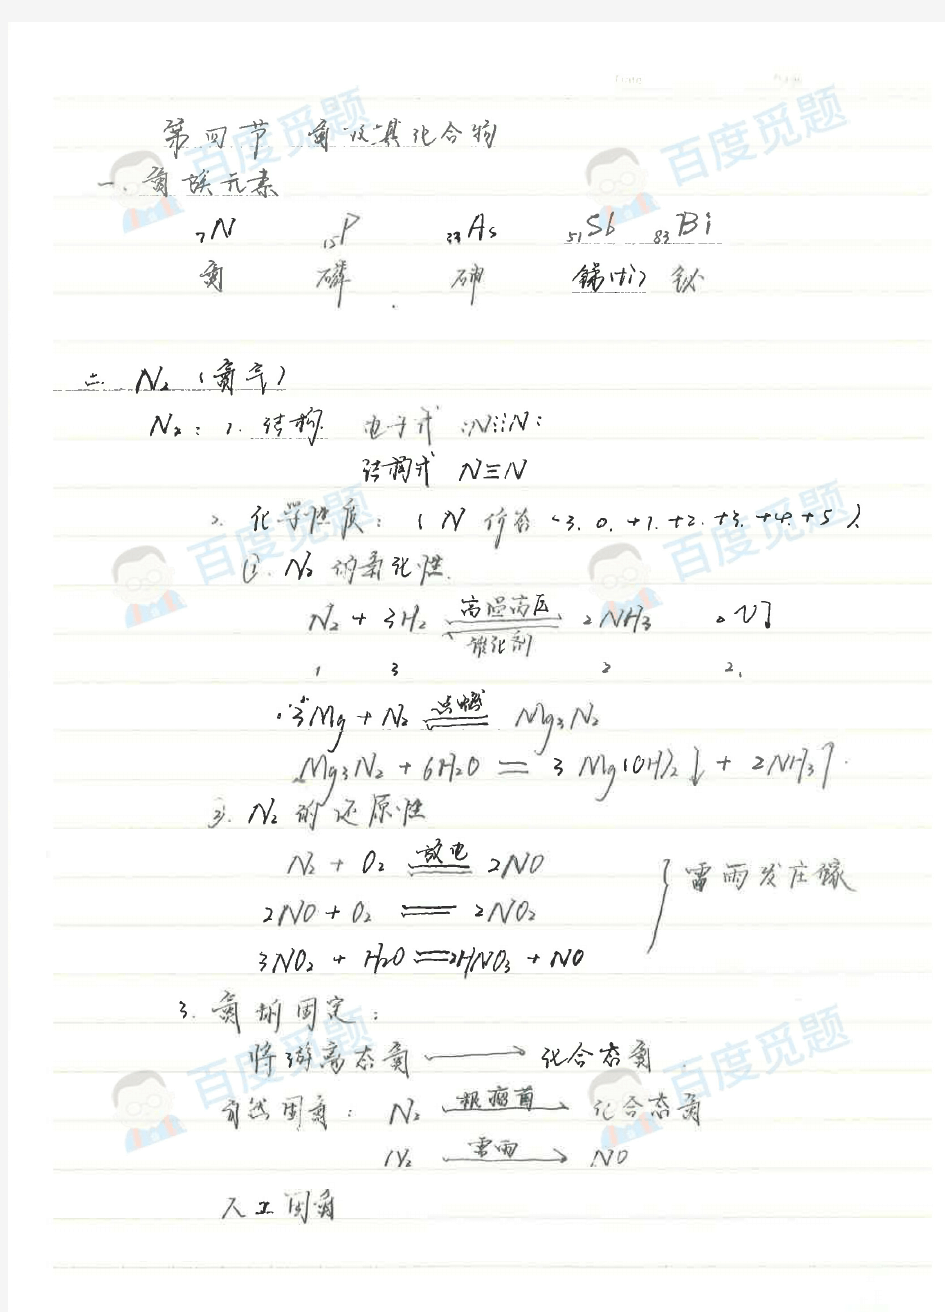 第四节 氮及其化合物
一. 氮族元素
₇N ₁₅P ₃₃As ₅₁Sb ₈₃Bi
氮 磷 砷 锑(tī) 铋
二. N₂ (氮气)
N₂: 1. 结构 电子式 :N⋮⋮N:
结构式 N≡N
2. 化学性质: (N 价态 -3. 0. +1. +2. +3. +4. +5).
①. N₂ 的氧化性.
N₂ + 3H₂ 高温高压 催化剂 2NH₃
1 3 2 2.
3Mg + N₂ 点燃 == Mg₃N₂
Mg₃N₂ + 6H₂O == 3Mg(OH)₂↓ + 2NH₃↑.
②. N₂ 的还原性
N₂ + O₂ 放电 == 2NO
2NO + O₂ == 2NO₂ } 雷雨发庄稼
3NO₂ + H₂O == 2HNO₃ + NO
3. 氮的固定:
将游离态氮 → 化合态氮.
自然固氮: N₂ 根瘤菌 → 化合态氮
N₂ 雷雨 → NO
人工固氮
百度觅题
百度觅题
百度觅题
百度觅题
百度觅题
百度觅题